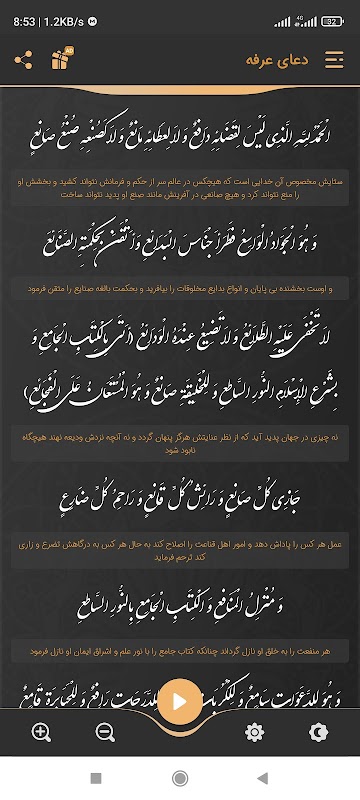 8:53 | 1.2KB/s
4G
32
AD
دعای عرفه
اَلْحَمْدُ لِلّهِ الَّذِی لَیْسَ لِقَضآئِهِ دافِعٌ وَ لا لِعَطائِهِ مانِعٌ وَ لا کَصُنْعِهِ صُنْعُ صانِعٍ
ستایش مخصوص آن خدایی است که هیچکس در عالم سر از حکم و فرمانش نتواند کشید و بخشش او
را منع نتواند کرد و هیچ صانعی در آفرینش مانند صنع او پدید نتواند ساخت
وَ هُوَ الْجَوادُ الْواسِعُ فَطَرَ اَجْناسَ الْبَدایِعِ وَ اَتْقَنَ بِحِکْمَتِهِ الصَّنایِعَ
و اوست بخشنده بی پایان و انواع بدایع مخلوقات را بیافرید و بحکمت بالغه صنایع را متقن فرمود
لا تَخْفی عَلَیْهِ الطَّلایِعُ وَ لا تَضیعُ عِنْدَهُ الْوَدایِعُ (اَتی بِالْکِتابِ الْجامِعِ وَ
بِشَرْعِ الْاِسْلامِ النُّورِ السّاطِعِ وَ لِلْخَلیقَةِ صانِعٌ وَ هُوَ الْمُسْتَعانُ عَلَی الْفَجایِعِ)
نه چیزی در جهان پدید آید که از نظر عنایتش هرگز پنهان گردد و نه آنچه نزدش ودیعه نهند هیچگاه
نابود شود
جازی کُلِّ صانِعٍ وَ رایِشُ کُلِّ قانِعٍ وَ راحِمُ کُلِّ ضارِعٍ
عمل هر کس را پاداش دهد و امور اهل قناعت را اصلاح کند به حال هر کس به درگاهش تضرع و زاری
کند ترحم فرماید
وَ مُنْزِلُ الْمَنافِعِ وَ الْکِتابِ الْجامِعِ بِالنُّورِ السّاطِعِ
هر منفعت را به خلق او نازل گرداند چنانکه کتاب جامع را با نور علم و اشراق ایمان او نازل فرمود
وَ هُوَ لِلدَّعَواتِ سامِعٌ وَ لِلْکُرُباتِ لِلدَّرَجاتِ رافِعٌ وَ لِلْجَبابِرَةِ قامِعٌ